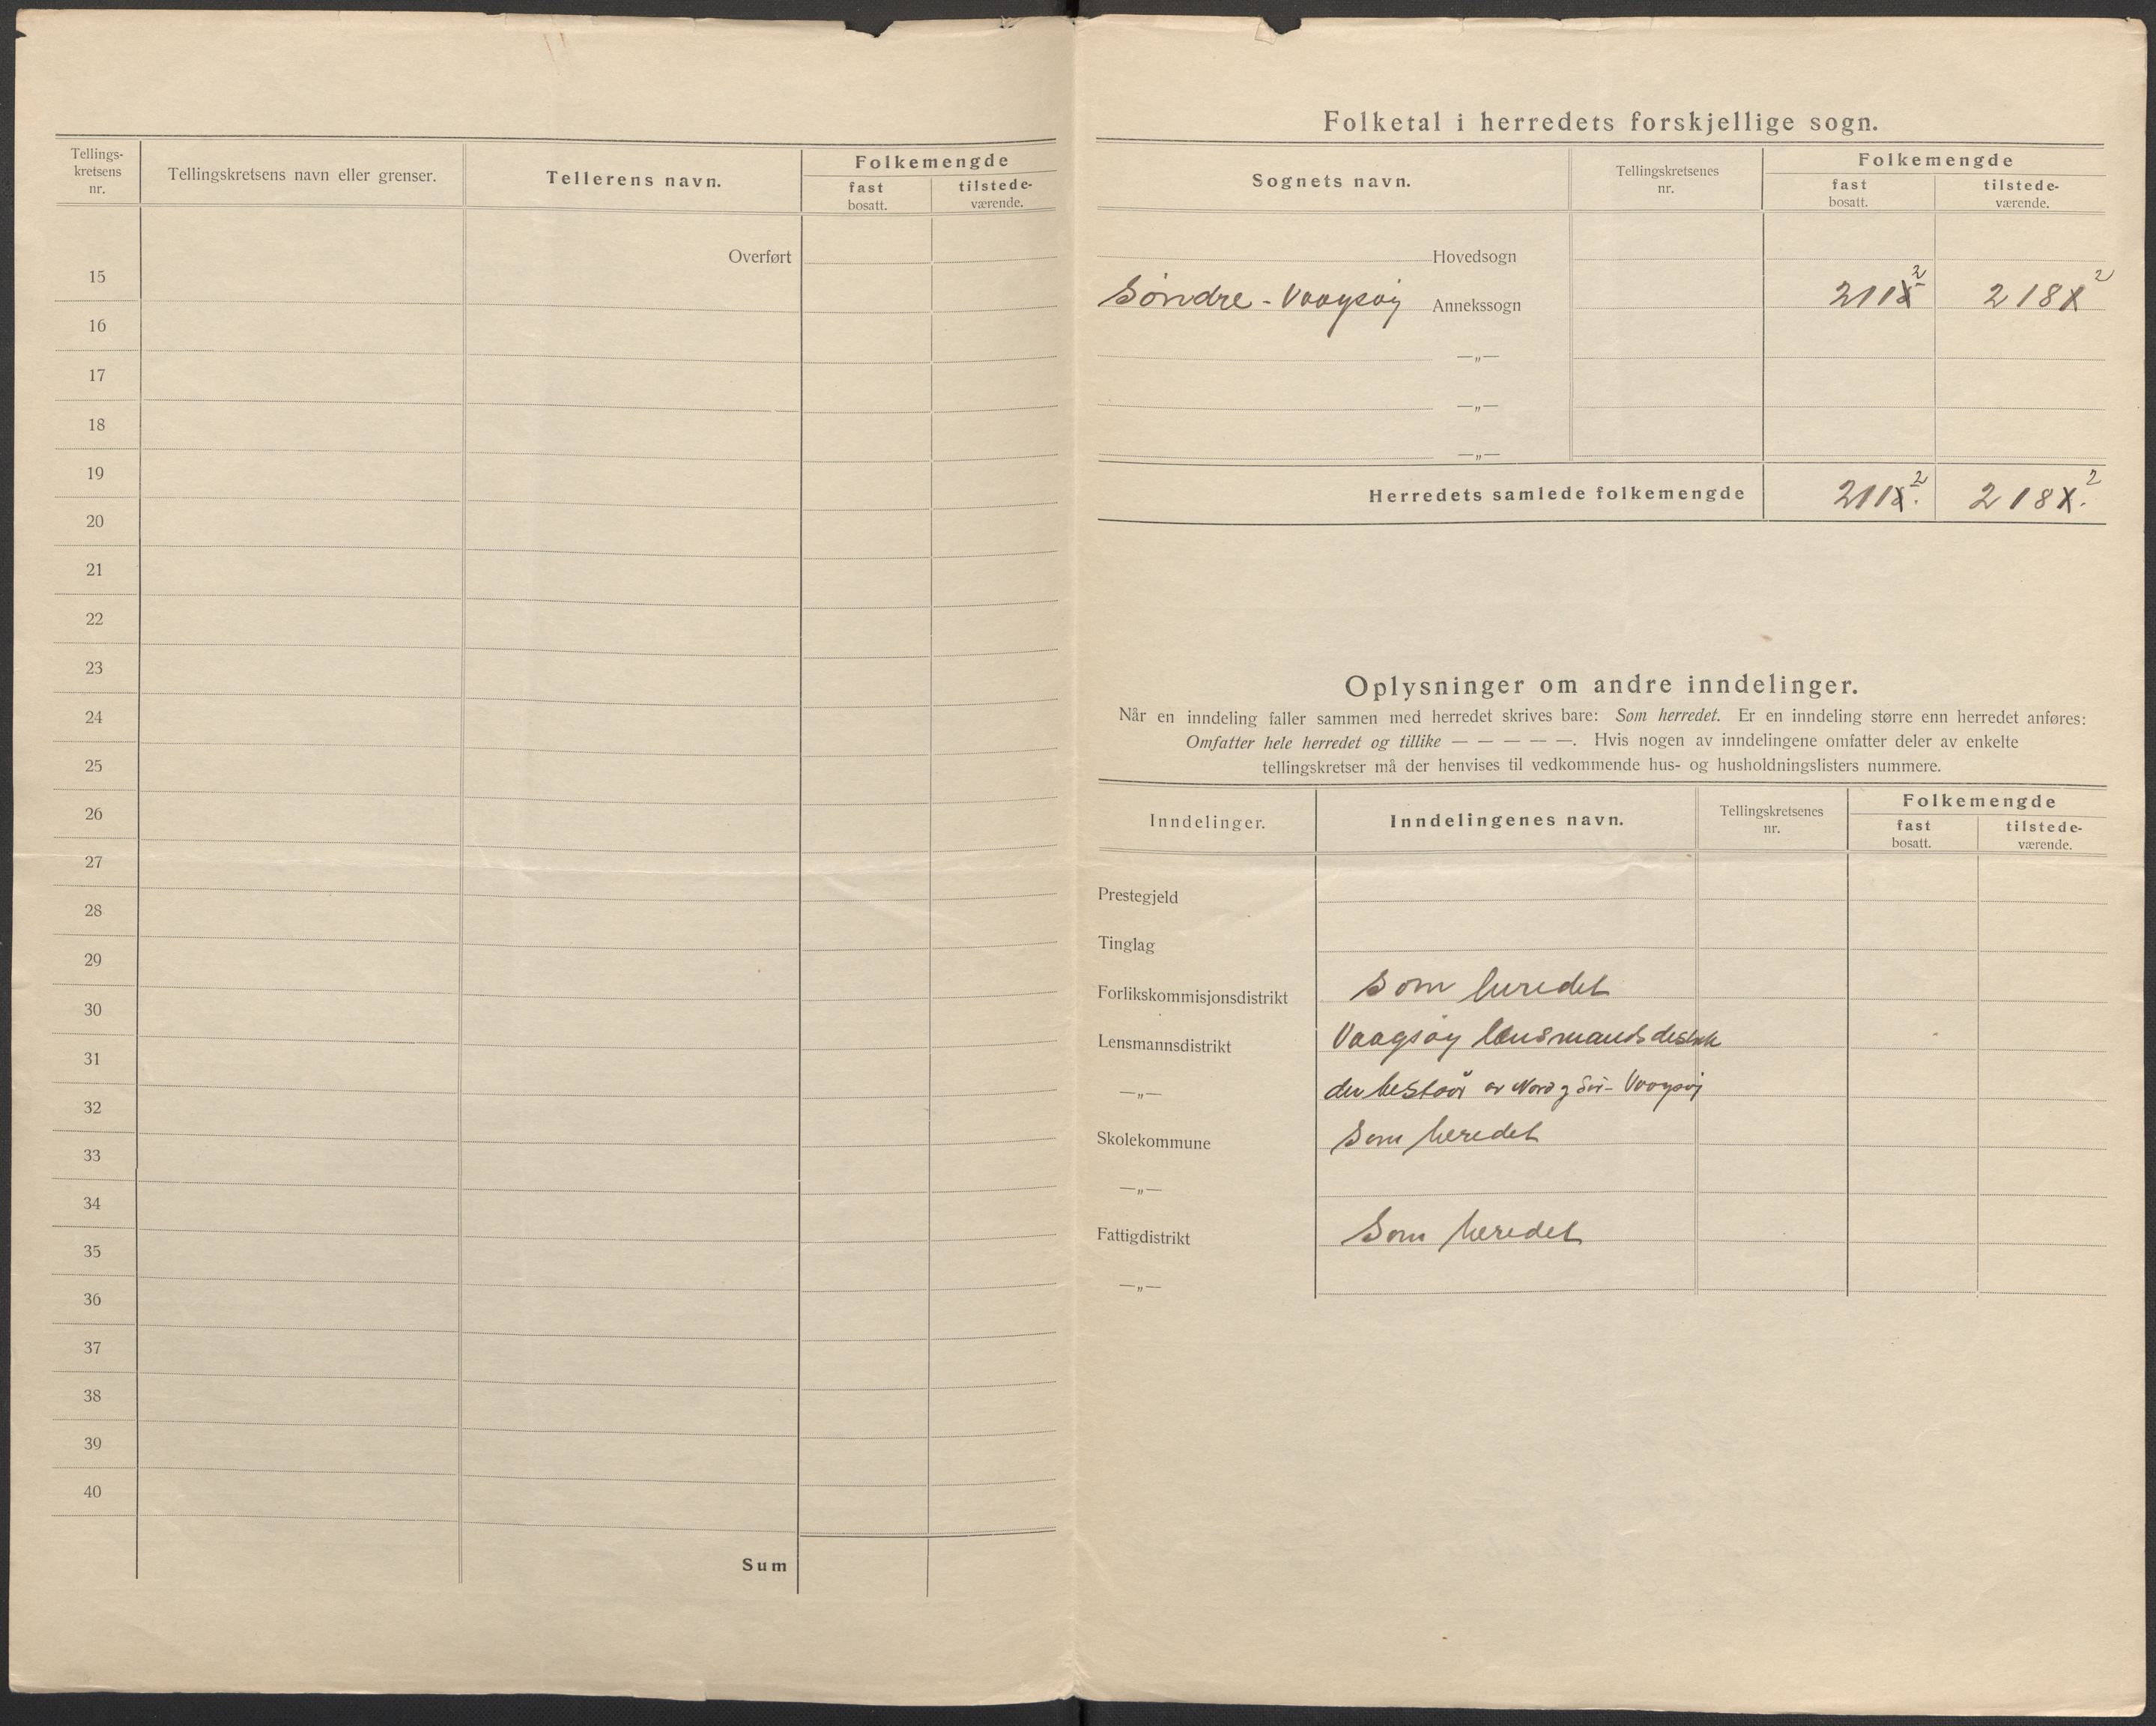 Tellings-
kretsens
nr.
Tellingskretsens navn eller grenser.
Tellerens navn.
Folkemengde
fast
bosatt.
tilstede-
værende.
Overført
15
16
17
18
19
20
21
22
23
24
25
26
27
28
29
30
31
32
33
34
35
36
37
38
39
40
Sum
Folketal i herredets forskjellige sogn.
Sognets navn.
Tellingskretsenes
nr.
Folkemengde
fast
bosatt.
tilstede-
værende.
Hovedsogn
Søndre - Vaagsøy Annekssogn 211 2 218 2
—„—
—„—
—„—
Herredets samlede folkemengde 211 2. 218 2.
Oplysninger om andre inndelinger.
Når en inndeling faller sammen med herredet skrives bare: Som herredet. Er en inndeling større enn herredet anføres:
Omfatter hele herredet og tillike — — — — —. Hvis nogen av inndelingene omfatter deler av enkelte
tellingskretser må der henvises til vedkommende hus- og husholdningslisters nummere.
Inndelinger.
Inndelingenes navn.
Tellingskretsenes
nr.
Folkemengde
fast
bosatt.
tilstede-
værende.
Prestegjeld
Tinglag
Forlikskommisjonsdistrikt Som heredet
Lensmannsdistrikt Vaagsøy lensmands
—„— der bestaar av Nord og Sør- Vaagsøy
Skolekommune Som heredet
—„—
Fattigdistrikt Som heredet
—„—